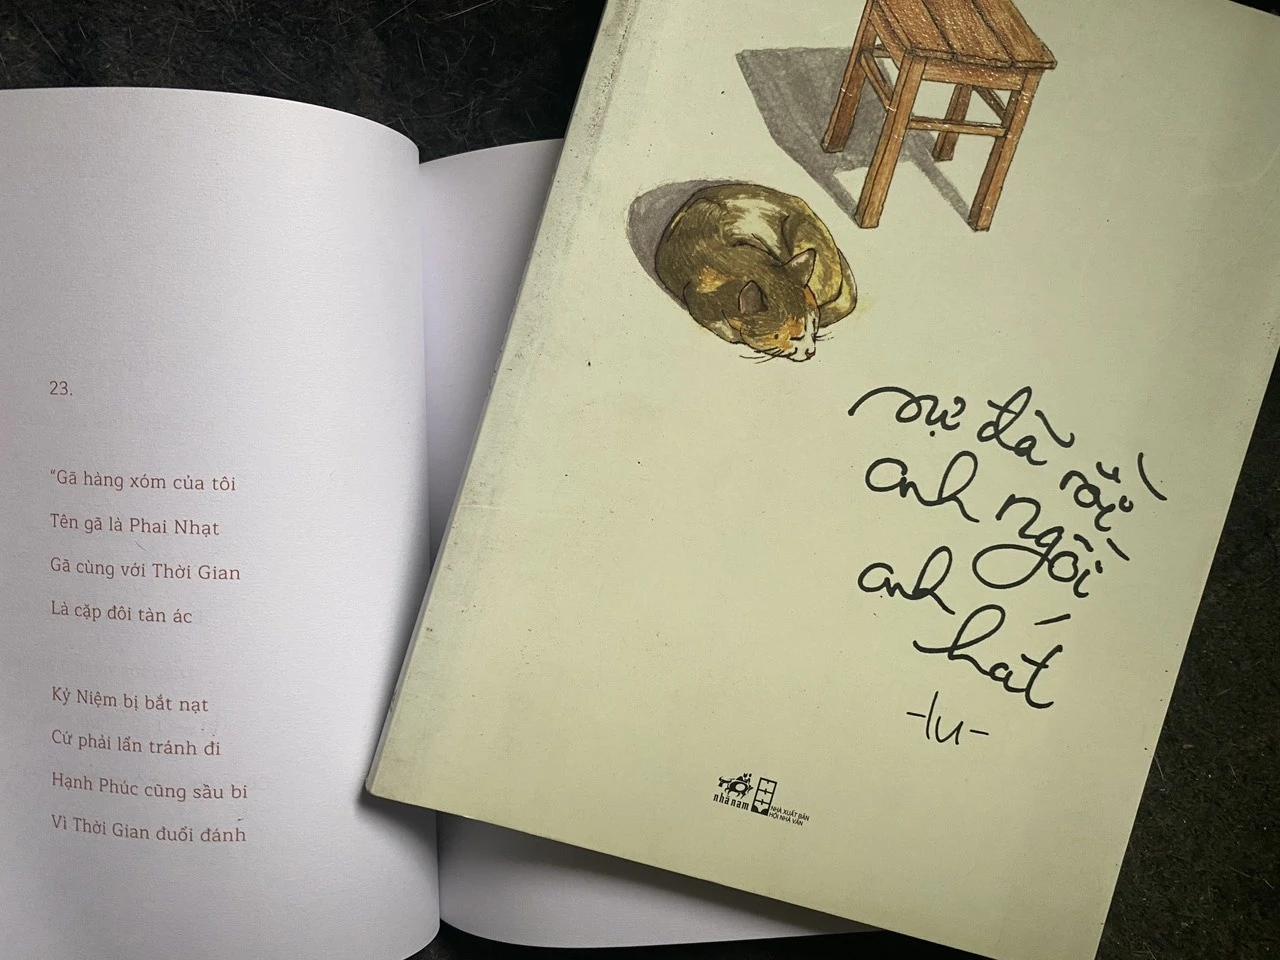 23.
“Gã hàng xóm của tôi
Tên gã là Phai Nhạt
Gã cùng với Thời Gian
Là cặp đôi tàn ác
Kỷ Niệm bị bắt nạt
Cứ phải lẩn tránh đi
Hạnh Phúc cũng sầu bi
Vì Thời Gian đuổi đánh
sự đã rồi
anh ngồi
anh hát
-lu-
nhã nam
NHÀ XUẤT BẢN
HỘI NHÀ VĂN